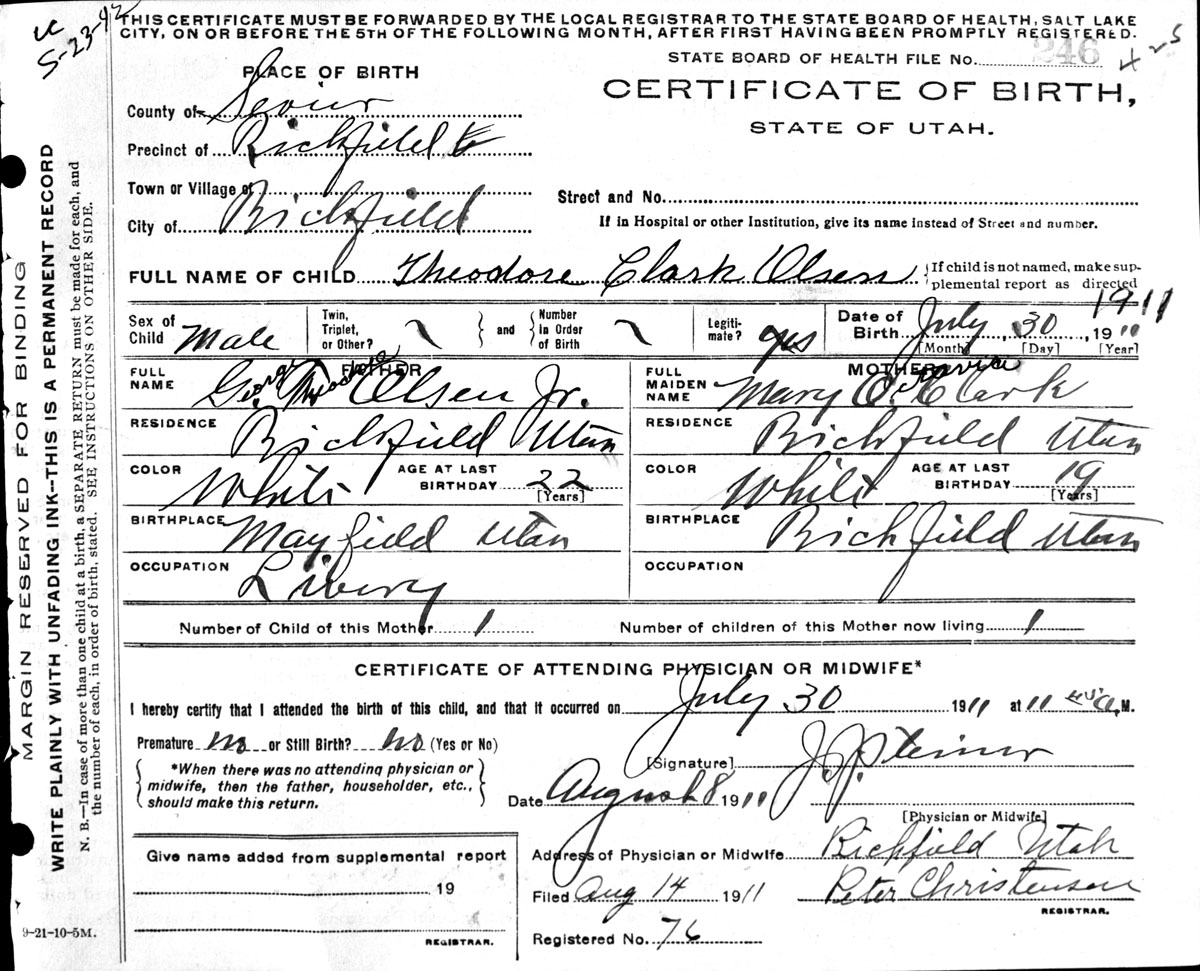 THIS CERTIFICATE MUST BE FORWARDED BY THE LOCAL REGISTRAR TO THE STATE BOARD OF HEALTH, SALT LAKE
CITY, ON OR BEFORE THE 5TH OF THE FOLLOWING MONTH, AFTER FIRST HAVING BEEN PROMPTLY REGISTERED.
5-23-42
STATE BOARD OF HEALTH FILE No. 246
425
PLACE OF BIRTH
CERTIFICATE OF BIRTH,
STATE OF UTAH.
County of Sevier
Precinct of Richfield
Town or Village of
City of Richfield
Street and No.
If in Hospital or other Institution, give its name instead of Street and number.
FULL NAME OF CHILD Theodore Clark Olsen
If child is not named, make sup-
plemental report as directed
Sex of Child Male
Twin, Triplet, or Other?
and
Number in Order of Birth
Legiti- mate? yes
Date of Birth July 30, 1911
1911
[Month] [Day] [Year]
FATHER
FULL NAME Geo. Theodore Olsen Jr.
George
RESIDENCE Richfield Utah
COLOR White AGE AT LAST BIRTHDAY 22 [Years]
BIRTHPLACE Mayfield Utah
OCCUPATION Livery
MOTHER
FULL MAIDEN NAME Mary O. Clark
Octavia
RESIDENCE Richfield Utah
COLOR White AGE AT LAST BIRTHDAY 19 [Years]
BIRTHPLACE Richfield Utah
OCCUPATION
Number of Child of this Mother 1 Number of children of this Mother now living 1
CERTIFICATE OF ATTENDING PHYSICIAN OR MIDWIFE*
I hereby certify that I attended the birth of this child, and that it occurred on July 30 1911 at 11 a. M.
Premature no or Still Birth? no (Yes or No)
*When there was no attending physician or
midwife, then the father, householder, etc.,
should make this return.
[Signature] J. J. Steiner
Date August 8 1911
[Physician or Midwife]
Address of Physician or Midwife Richfield Utah
Filed Aug 14 1911 Peter Christensen
REGISTRAR.
Registered No. 76
Give name added from supplemental report
19
REGISTRAR.
9-21-10-5M.
MARGIN RESERVED FOR BINDING
WRITE PLAINLY WITH UNFADING INK--THIS IS A PERMANENT RECORD
N. B.—In case of more than one child at a birth, a SEPARATE RETURN must be made for each, and
the number of each, in order of birth, stated. SEE INSTRUCTIONS ON OTHER SIDE.